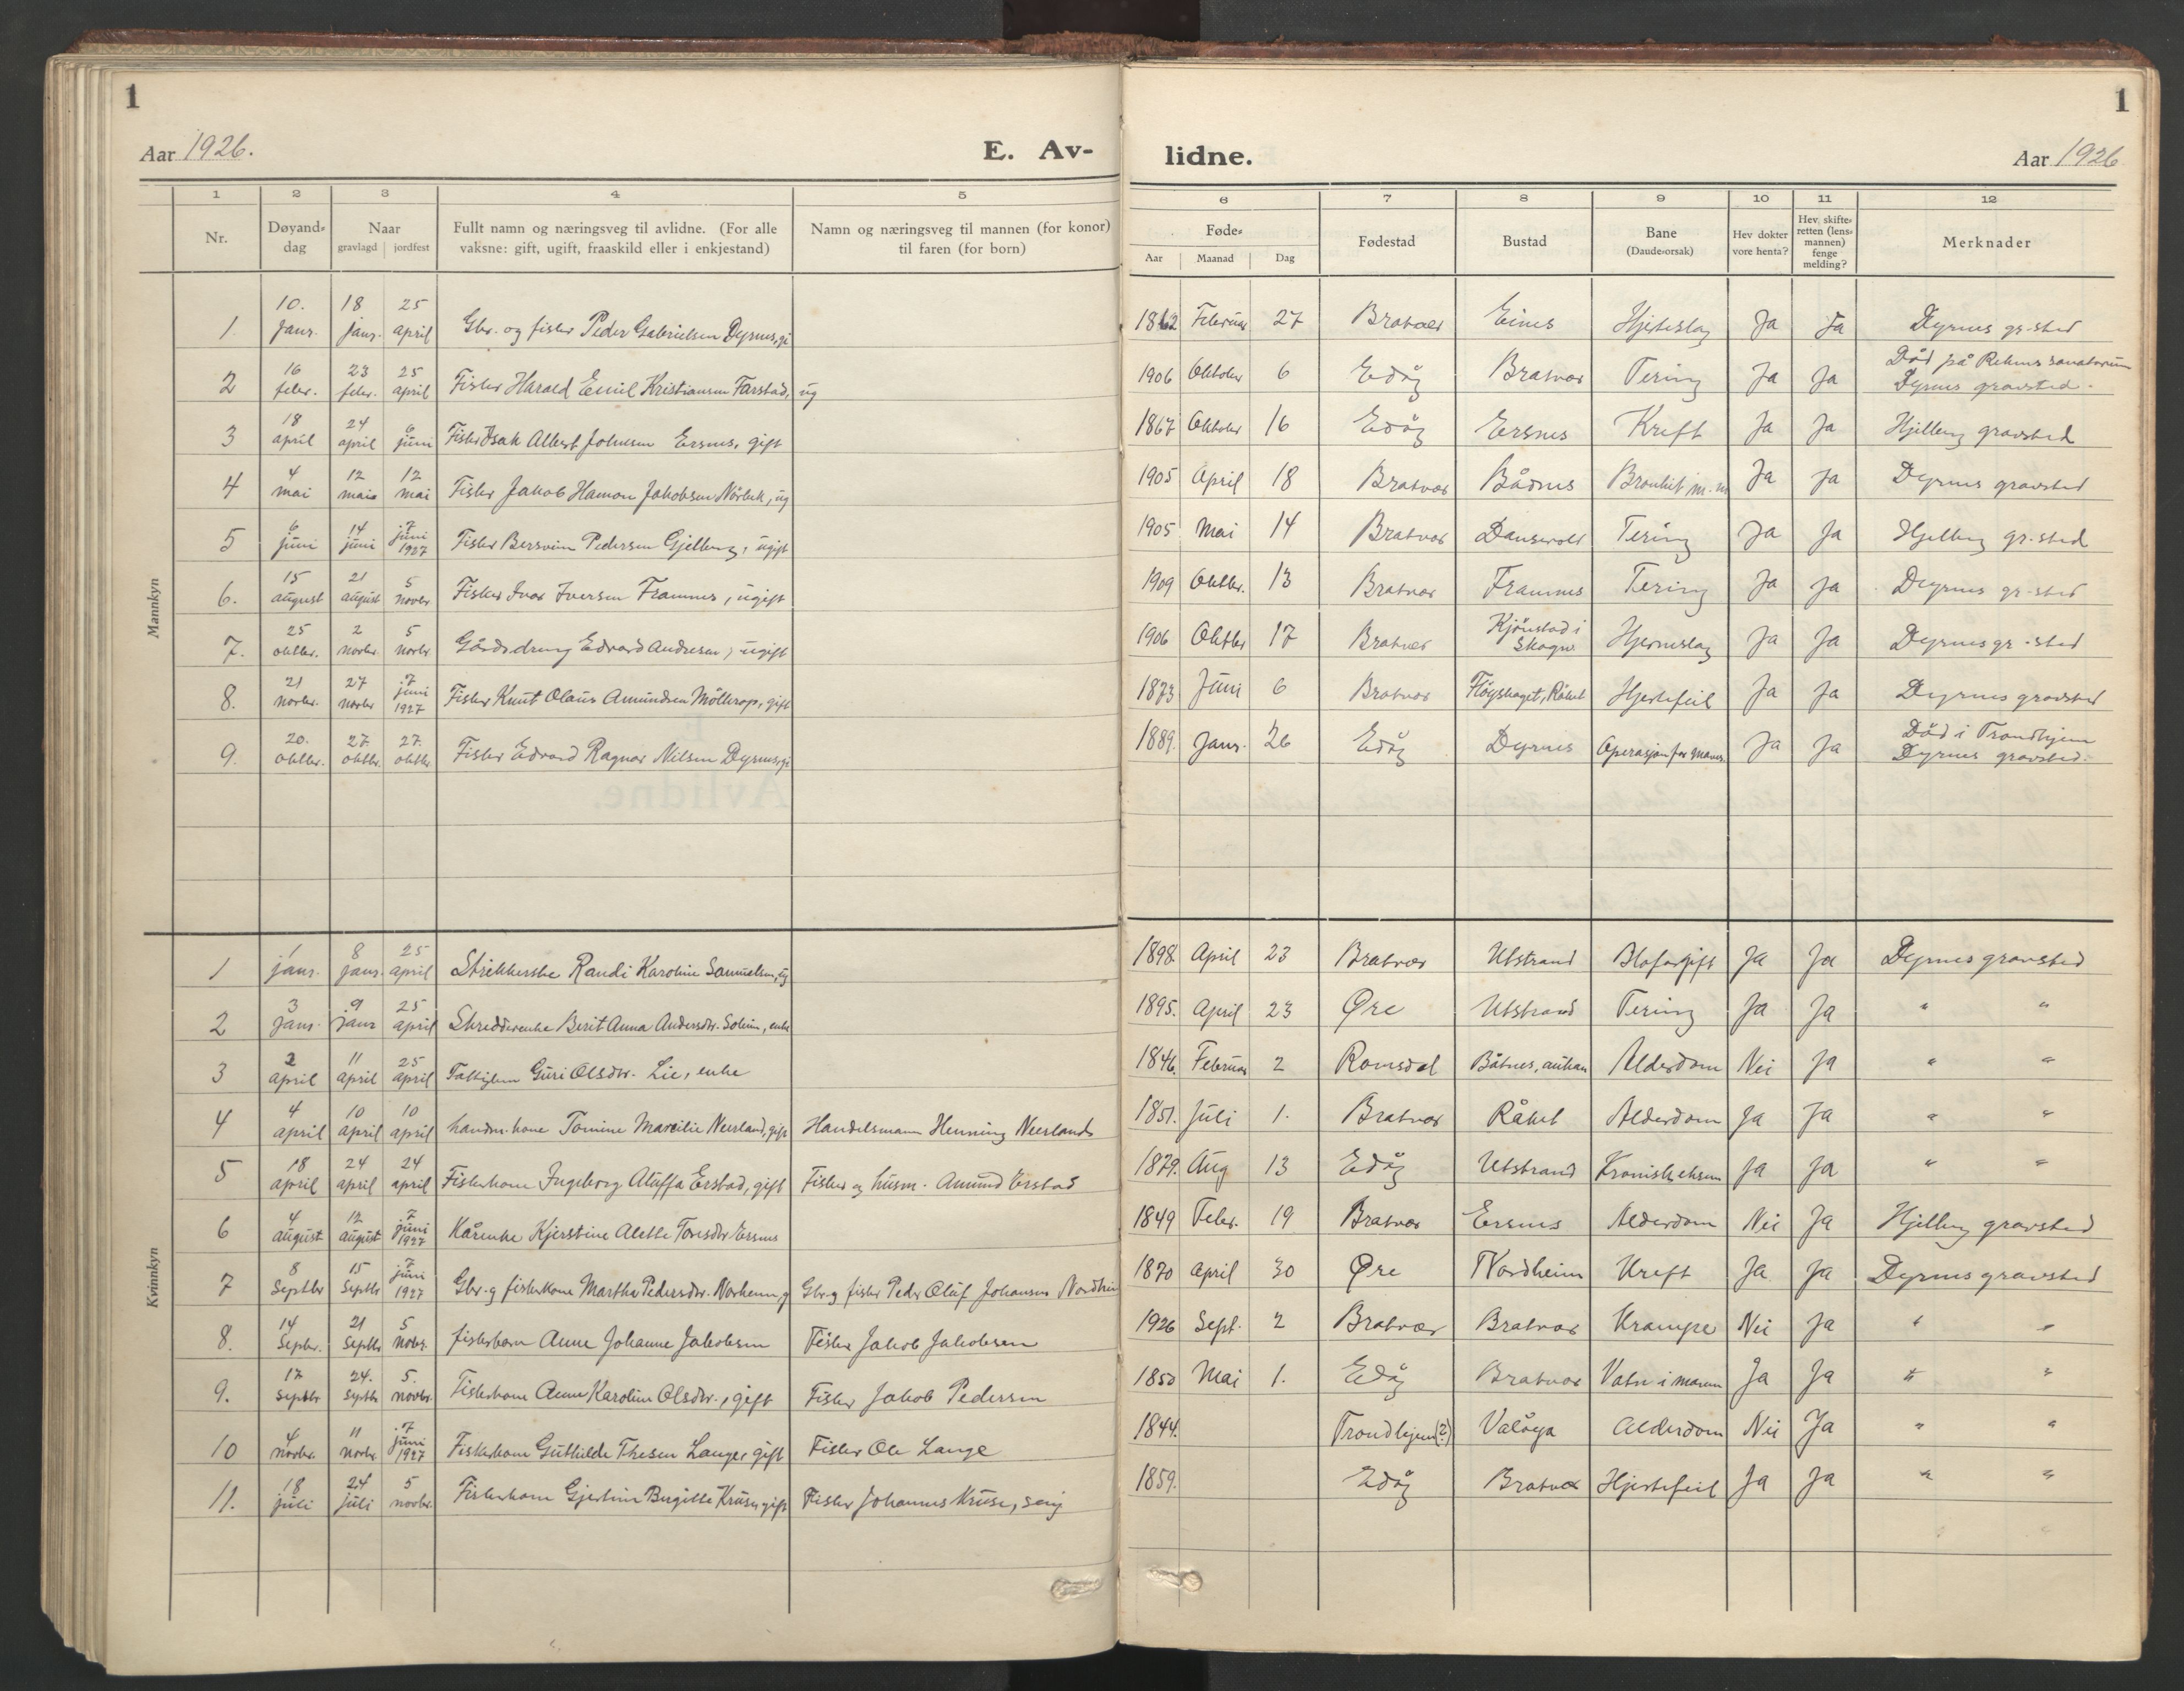 1
Aar 1926.
E. Av-
1 2 3 4 5
Nr. Døyand=dag Naar gravlagd jordfest Fullt namn og næringsveg til avlidne. (For alle vaksne: gift, ugift, fraaskild eller i enkjestand) Namn og næringsveg til mannen (for konor) til faren (for born)
Mannkyn
1. 10. janr. 18 janr. 25 april Gbr. og fisker Peder Gabrielsen Dyrnes, gi
2 16 febr. 23 febr. 25 april Fisker Harald Emil Kristiansen Farstad, ug
3 18 april 24 april 6 juni Fisker Isak Albert Johnsen Ersnes, gift
4 4 mai 12 mai 12 mai Fisker Jakob Hamon Jakobsen, ug
5 6 juni 14 juni 7 juni 1927 Fisker Bersvein Pedersen Gjelberg, ugift
6. 15 august 21 august 5 novbr Fisker Ivar Iversen Framnes, ugift
7. 25 oktbr. 2 novbr. 5 novbr Gårdsdreng Edvard Andresen, ugift
8. 21 novbr. 27 novbr 7 juni 1927 Fisker Knut Olaus Amundsen, gift
9. 20. oktbr. 27. oktbr. 27. oktbr. Fisker Edvard Ragnar Nilsen Dyrnes, gi
Kvinnkyn
1 1 janr. 8 janr. 25 april Strikkerske Randi Karoline Samuelsen, ug
2 3 janr. 9 janr 25 april Skredderenke Berit Anna Andersdtr. Solem, enke
3 2 april 11 april 25 april Fattiglem Guri Olsdtr. Lie, enke
4 4 april 10 april 10 april handm. kone Tomine Marcilie Neerland, gift Handelsmann Henning Neerland
5 18 april 24 april 24 april Fiskerkone Ingeborg Aluffa Erstad, gift Fisker og husm. Amund Erstad
6 4 august 12 august 7 juni 1927 Kårenke Kjerstine Alette Toresdtr Ersnes
7 8 Septbr 15 Septbr 7 juni 1927 Gbr. og fiskerkone Martha Pedersdtr. Norheim, g Gbr. og fisker Peder Oluf Johansen Nordheim
8. 14 Septbr. 21 Septbr 5 novbr. fiskerbarn Anne Johanne Jakobsen Fisker Jakob Jakobsen
9. 17 septbr 24. septbr 5. novbr. Fiskerkone Anne Karoline Olsdtr., gift Fisker Jakob Pedersen
10 4 novbr. 11 novbr. 7 juni 1927 Fiskerkone Guthilde Thesen Lange, gift Fisker Ole Lange
11. 18 juli 24 juli 5 novbr. Fiskerkone Gjertine Birgitte Kruse, gift Fisker Johannes Kruse,
1
lidne.
Aar 1926
6 7 8 9 10 11 12
Føde= Aar Maanad Dag Fødestad Bustad Bane (Daude=orsak) Hev dokter vore henta? Hev skifte=retten (lens=mannen) fenge melding? Merknader
1862 Februar 27 Bratvær Eines Hjerteslag Ja Ja Dyrnes gr.sted
1906 Oktober 6 Edøy Bratvær Tering Ja Ja Død på Reknes sanatorium Dyrnes gravsted.
1867 Oktober 16 Edøy Ersnes Kreft Ja Ja Hjelberg gravsted
1905 April 18 Bratvær Bådnes Bronkit m.m Ja Ja Dyrnes gravsted
1905 Mai 14 Bratvær Tering Ja Ja Hjelberg gr.sted
1909 Oktbr. 13 Bratvær Framnes Tering Ja Ja Dyrnes gr.sted
1906 Oktbr 17 Bratvær Kjönstad i Skogn Hjerneslag Ja Ja Dyrnes gr.sted
1873 Juni 6 Bratvær Råket Hjertefeil Ja Ja Dyrnes gravsted
1889. Janr. 26 Edøy Dyrnes Operasjon for Ja Ja Død i Trondhjem Dyrnes gravsted.
1898. April 23 Bratvær Utstrand Blofargift Ja Ja Dyrnes gravsted
1895. April 23 Øre Utstrand Tering Ja Ja " "
1846. Februar 2 Romsdal Båtnes, Alderdom Nei Ja " "
1851. Juli 1. Bratvær Råket Alderdom Ja Ja " "
1879. Aug 13 Edøy Utstrand Kronisk eksem Ja Ja " "
1849 Febr. 19 Bratvær Ersnes Alderdom Nei Ja Hjelberg gravsted
1870 April 30 Øre Nordheim Kreft Ja Ja Dyrnes gravsted
1926 Sept. 2 Bratvær Bratvær Krampe Nei Ja " "
1850 Mai 1. Edøy Bratvær Vatn i maven Ja Ja " "
1844. Trondhjem (?) Valøya Alderdom Nei Ja " "
1859. Edøy Bratvær Hjertefeil Ja Ja " "